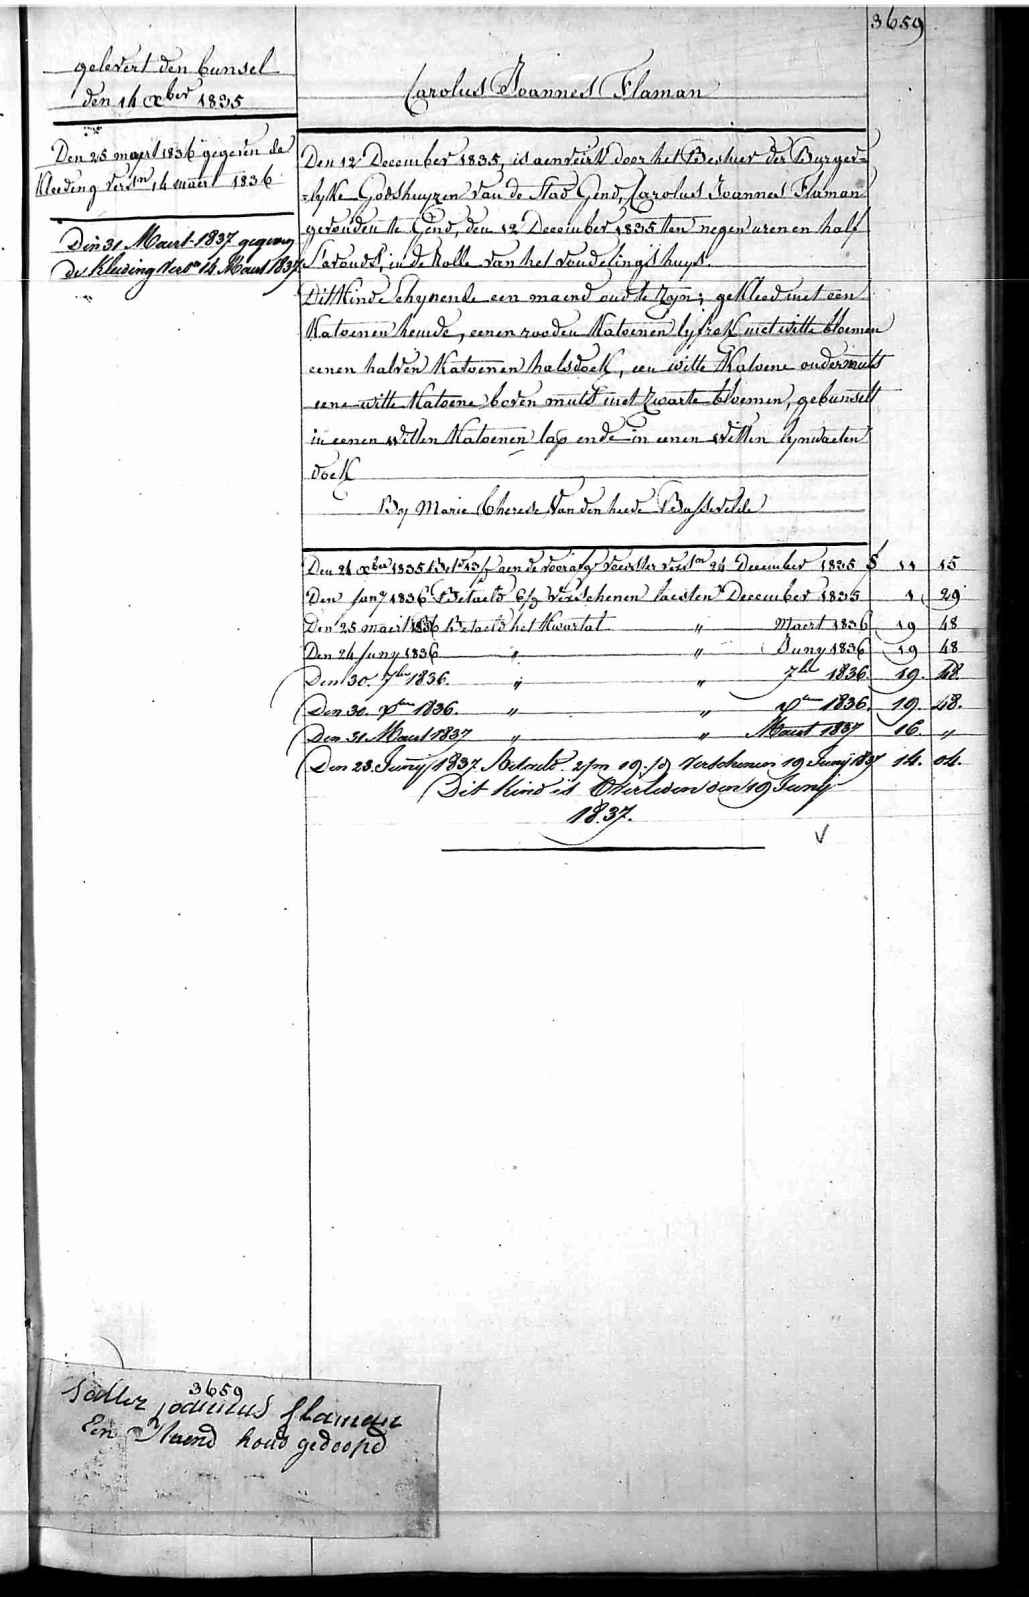 3659
gelevert den bunsel
den 14 xber 1835
Den 25 maert 1836 gegeven de
Kleeding versn 14 maert 1836
Den 31 Maert 1837 gegeven
de Kleeding versn 14 Maert 1837
Carolus Joannes Flaman
Den 12 December 1835, is aenveirt door het Bestier der Burger=
=lyke Godshuyzen van de stad Gend, Carolus Joannes Flaman
gevonden te Gend, den 12 December 1835 ten negen uren en half
S'avonds, in de Rolle van het vondelingshuys.
Dit Kinde Schynende een maend oud te zyn; gekleed met een
Katoenen hemde, eenen rooden Katoenen lyfrok met witte bloemen
eenen halven Katoenen halsdoek, een witte Katoene ondermuts
eene witte Katoene boven muts met zwarte bloemen, gebunselt
in eenen witten Katoenen lap ende in eenen witten lynwaeten
doek
By Marie Therese Van den heede Bassevelde
Den 21 xber 1835 Betd 13 f aen de voorafg versn 24 December 1835 11 15
Den Jany 1836 Betaeld 6/9 Verschenen laesten December 1835 1 29
Den 25 maert 1836 Betaeld het Kwartal " Maert 1836 19 48
Den 24 Juny 1836 " " Juny 1836 19 48
Den 30. 7ber 1836. " " 7ber 1836. 19. 48.
Den 30. xber 1836. " " xber 1836. 19. 48.
Den 31 Maert 1837 " " Maert 1837 16. "
Den 23. Juny 1837. Betaeld 2/m 19./d Verschenen 19 Juny 1837 14. 04.
Dit Kind is Overleden den 19 Juny
1837.
3659
joannes flaman
Een Maend houd gedoopd